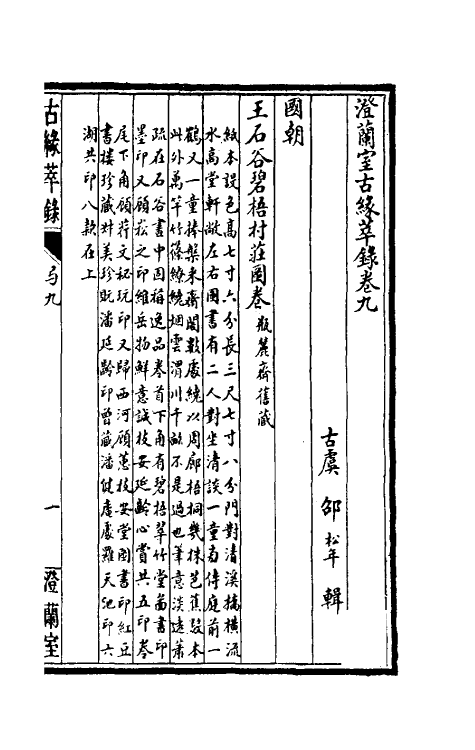 澄蘭室古緣萃錄卷九
古虞 邵松年 輯
國朝
王石谷碧梧村莊圖卷 瓶麓齋舊藏
紙本設色高七寸六分長三尺七寸八分門對清溪橋橫流
水高堂軒敞左右圖書有二人對坐清談一童旁侍庭前一
鶴又一童捧槃來齋閣數處繞以周廊梧桐幾株芭蕉數本
此外萬竿竹篠繚繞烟雲渭川千畝不是過也筆意淡遠蕭
疏在石谷書中固稱逸品卷首下角有碧梧翠竹堂圖書印
墨印又顧崧之印維岳物鮮意誠枝安延齡心賞共五印卷
尾下角顧蒋文秘玩印又歸西河顧蕙枝安堂圖書印紅豆
書樓珍藏对美珍貺潘延齡印曾藏潘健庵處羅天池印六
湖共印八款在上
古緣萃錄
卷九
一
澄蘭室